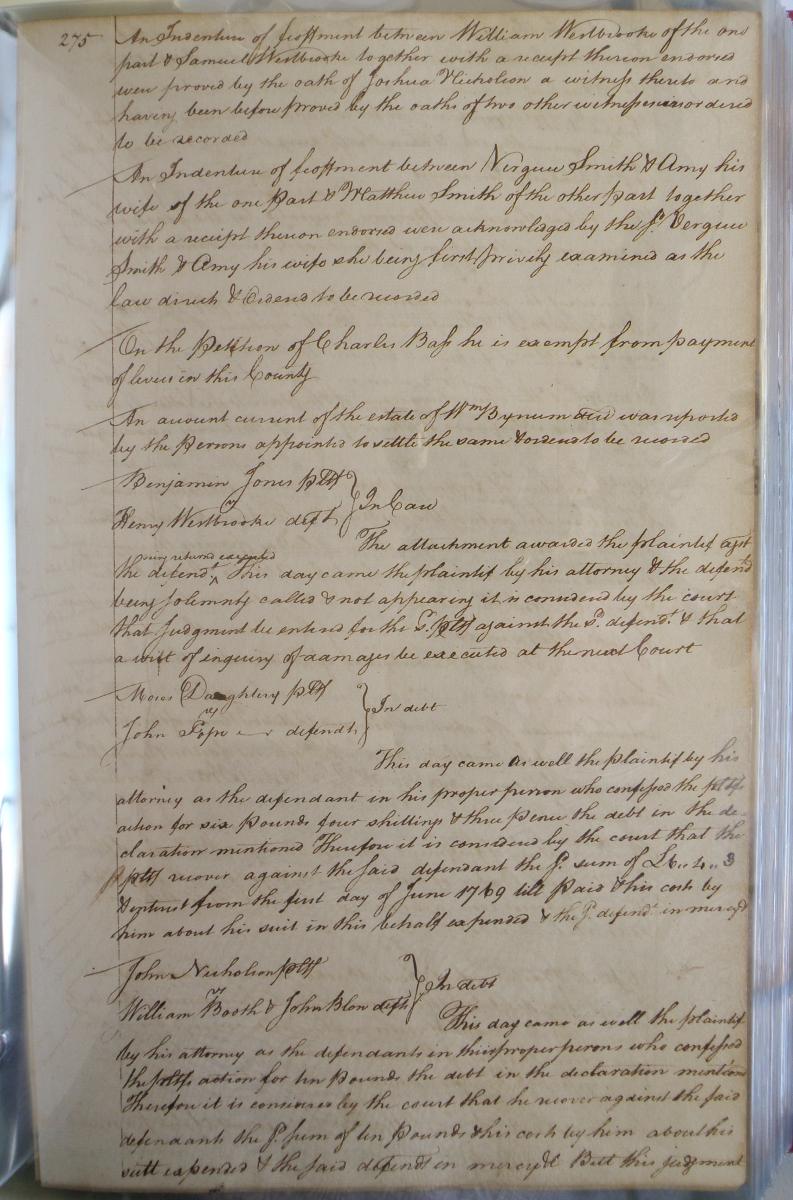 275
An Indenture of feoffment between William Westbrooke of the one
part & Samuel Westbrooke together with a receipt thereon endorsed
were proved by the oath of Joshua Nicholson a witness thereto and
having been before proved by the oaths of two other witnesses ordered
to be recorded
An Indenture of feoffment between Virgus Smith & Amy his
wife of the one Part & Matthew Smith of the other part together
with a receipt thereon endorsed were acknowledged by the sd. Vergus
Smith & Amy his wife she being first privily examined as the
law direct & Ordered to be recorded
On the Petition of Charles Bass he is exempt from payment
of levies in this County
An account current of the estate of Wm Bynum decd was reported
by the Persons appointed to settle the same & ordered to be recorded
Benjamin Jones pltf
vs
Henry Westbrooke deft
In Case
The attachment awarded the plaintif agst
being returned executed
the defendt. This day came the plaintif by his attorney & the defendt
being solemnly called & not appearing it is considered by the court
that Judgment be entered for the sd. pltf against the sd. defendt. & that
a writ of inquiry of damages be executed at the next Court
Moses Daughtery pltf
vs
John Pope defendt
In debt
This day came as well the plaintif by his
attorney as the defendant in his proper person who confessed the pltfs
action for six Pounds four shillings & three Pence the debt in the de-
claration mentioned Therefore it is considered by the court that the
pltf recover against the said defendant the sd. sum of £6..4..3
& interest from the first day of June 1769 till Paid & his costs by
him about his suit in this behalf expended & the sd. defendt. in mercy &
John Nicholson pltf
vs
William Booth & John Blow defts
In debt
This day came as well the plaintif
by his attorney as the defendants in their proper persons who confessed
the pltfs action for ten Pounds the debt in the declaration mentioned
Therefore it is considered by the court that he recover against the said
defendants the sd. sum of ten Pounds & his costs by him about his
suit expended & the said defendt in mercy & But this judgment